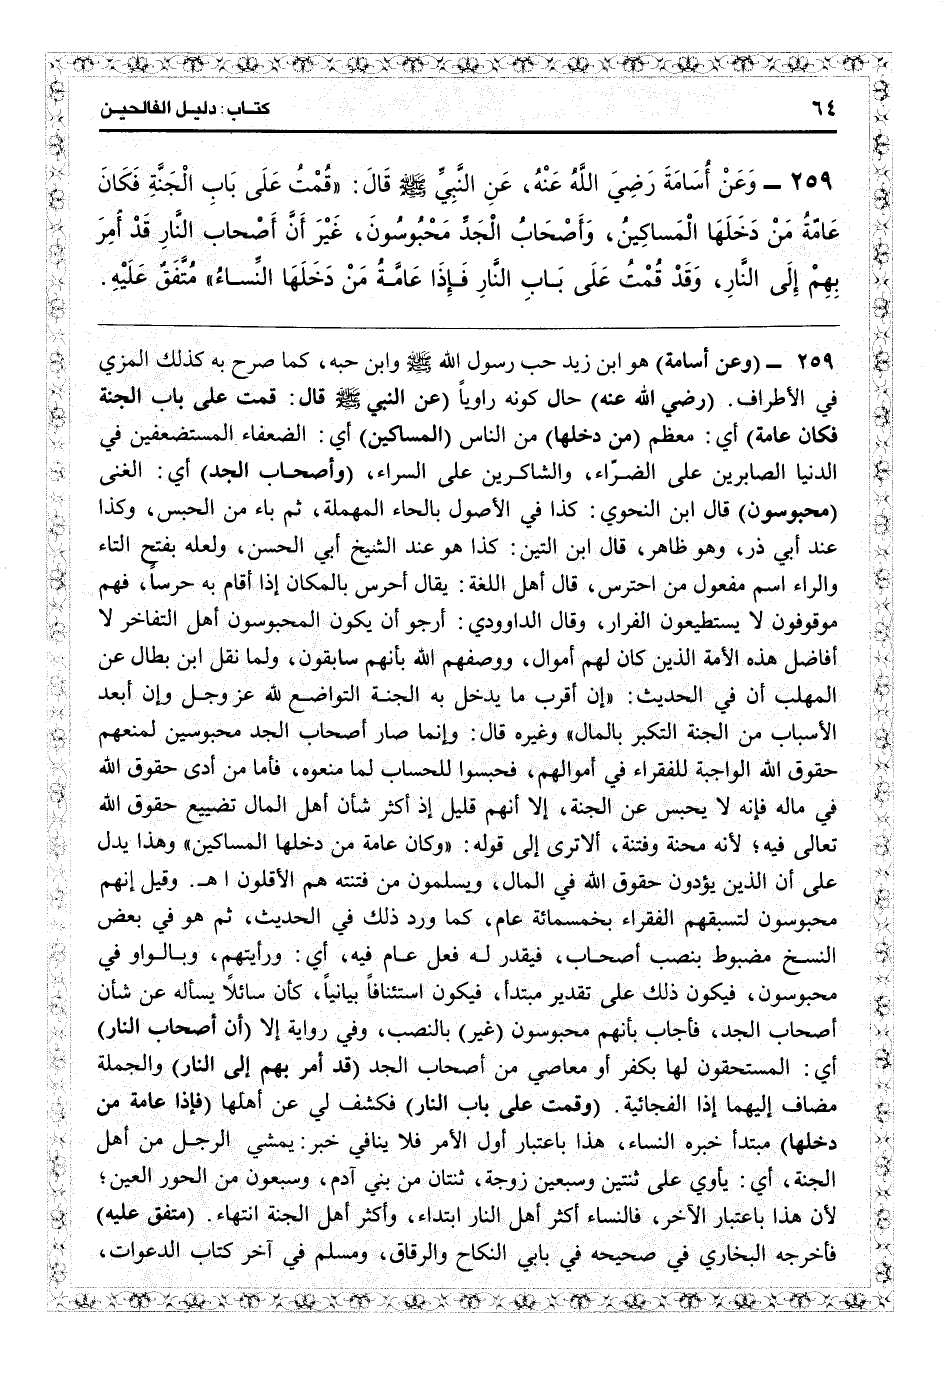 ٦٤
كتاب: دليل الفالحين
٢٥٩ ـ وَعَنْ أُسَامَةَ رَضِيَ اللَّهُ عَنْهُ، عَنِ النَّبِيِّ ﷺ قَالَ: «قُمْتُ عَلَى بَابِ الْجَنَّةِ فَكَانَ
عَامَّةُ مَنْ دَخَلَهَا الْمَسَاكِينُ، وَأَصْحَابُ الْجَدِّ مَحْبُوسُونَ، غَيْرَ أَنَّ أَصْحَابَ النَّارِ قَدْ أُمِرَ
بِهِمْ إِلَى النَّارِ، وَقَدْ قُمْتُ عَلَى بَابِ النَّارِ فَإِذَا عَامَّةُ مَنْ دَخَلَهَا النِّسَاءُ» مُتَّفَقٌ عَلَيْهِ.
٢٥٩ ـ (وعن أسامة) هو ابن زيد حب رسول الله ﷺ وابن حبه، كما صرح به كذلك المزي
في الأطراف. (رضي الله عنه) حال كونه راوياً (عن النبي ﷺ قال: قمت على باب الجنة
فكان عامة) أي: معظم (من دخلها) من الناس (المساكين) أي: الضعفاء المستضعفين في
الدنيا الصابرين على الضرّاء، والشاكرين على السراء، (وأصحاب الجد) أي: الغنى
(محبوسون) قال ابن النحوي: كذا في الأصول بالحاء المهملة، ثم باء من الحبس، وكذا
عند أبي ذر، وهو ظاهر، قال ابن التين: كذا هو عند الشيخ أبي الحسن، ولعله بفتح التاء
والراء اسم مفعول من احترس، قال أهل اللغة: يقال أحرس بالمكان إذا أقام به حرساً، فهم
موقوفون لا يستطيعون الفرار، وقال الداوودي: أرجو أن يكون المحبوسون أهل التفاخر لا
أفاضل هذه الأمة الذين كان لهم أموال، ووصفهم الله بأنهم سابقون، ولما نقل ابن بطال عن
المهلب أن في الحديث: «إن أقرب ما يدخل به الجنة التواضع لله عز وجل وإن أبعد
الأسباب من الجنة التكبر بالمال» وغيره قال: وإنما صار أصحاب الجد محبوسين لمنعهم
حقوق الله الواجبة للفقراء في أموالهم، فحبسوا للحساب لما منعوه، فأما من أدى حقوق الله
في ماله فإنه لا يحبس عن الجنة، إلا أنهم قليل إذ أكثر شأن أهل المال تضييع حقوق الله
تعالى فيه؛ لأنه محنة وفتنة، ألاترى إلى قوله: «وكان عامة من دخلها المساكين» وهذا يدل
على أن الذين يؤدون حقوق الله في المال، ويسلمون من فتنته هم الأقلون ا هـ. وقيل إنهم
محبوسون لتسبقهم الفقراء بخمسمائة عام، كما ورد ذلك في الحديث، ثم هو في بعض
النسخ مضبوط بنصب أصحاب، فيقدر له فعل عام فيه، أي: ورأيتهم، وبالواو في
محبوسون، فيكون ذلك على تقدير مبتدأ، فيكون استئنافاً بيانياً، كأن سائلاً يسأله عن شأن
أصحاب الجد، فأجاب بأنهم محبوسون (غير) بالنصب، وفي رواية إلا (أن أصحاب النار)
أي: المستحقون لها بكفر أو معاصي من أصحاب الجد (قد أمر بهم إلى النار) والجملة
مضاف إليهما إذا الفجائية. (وقمت على باب النار) فكشف لي عن أهلها (فإذا عامة من
دخلها) مبتدأ خبره النساء، هذا باعتبار أول الأمر فلا ينافي خبر: يمشي الرجل من أهل
الجنة، أي: يأوي على ثنتين وسبعين زوجة، ثنتان من بني آدم، وسبعون من الحور العين؛
لأن هذا باعتبار الآخر، فالنساء أكثر أهل النار ابتداء، وأكثر أهل الجنة انتهاء. (متفق عليه)
فأخرجه البخاري في صحيحه في بابي النكاح والرقاق، ومسلم في آخر كتاب الدعوات،